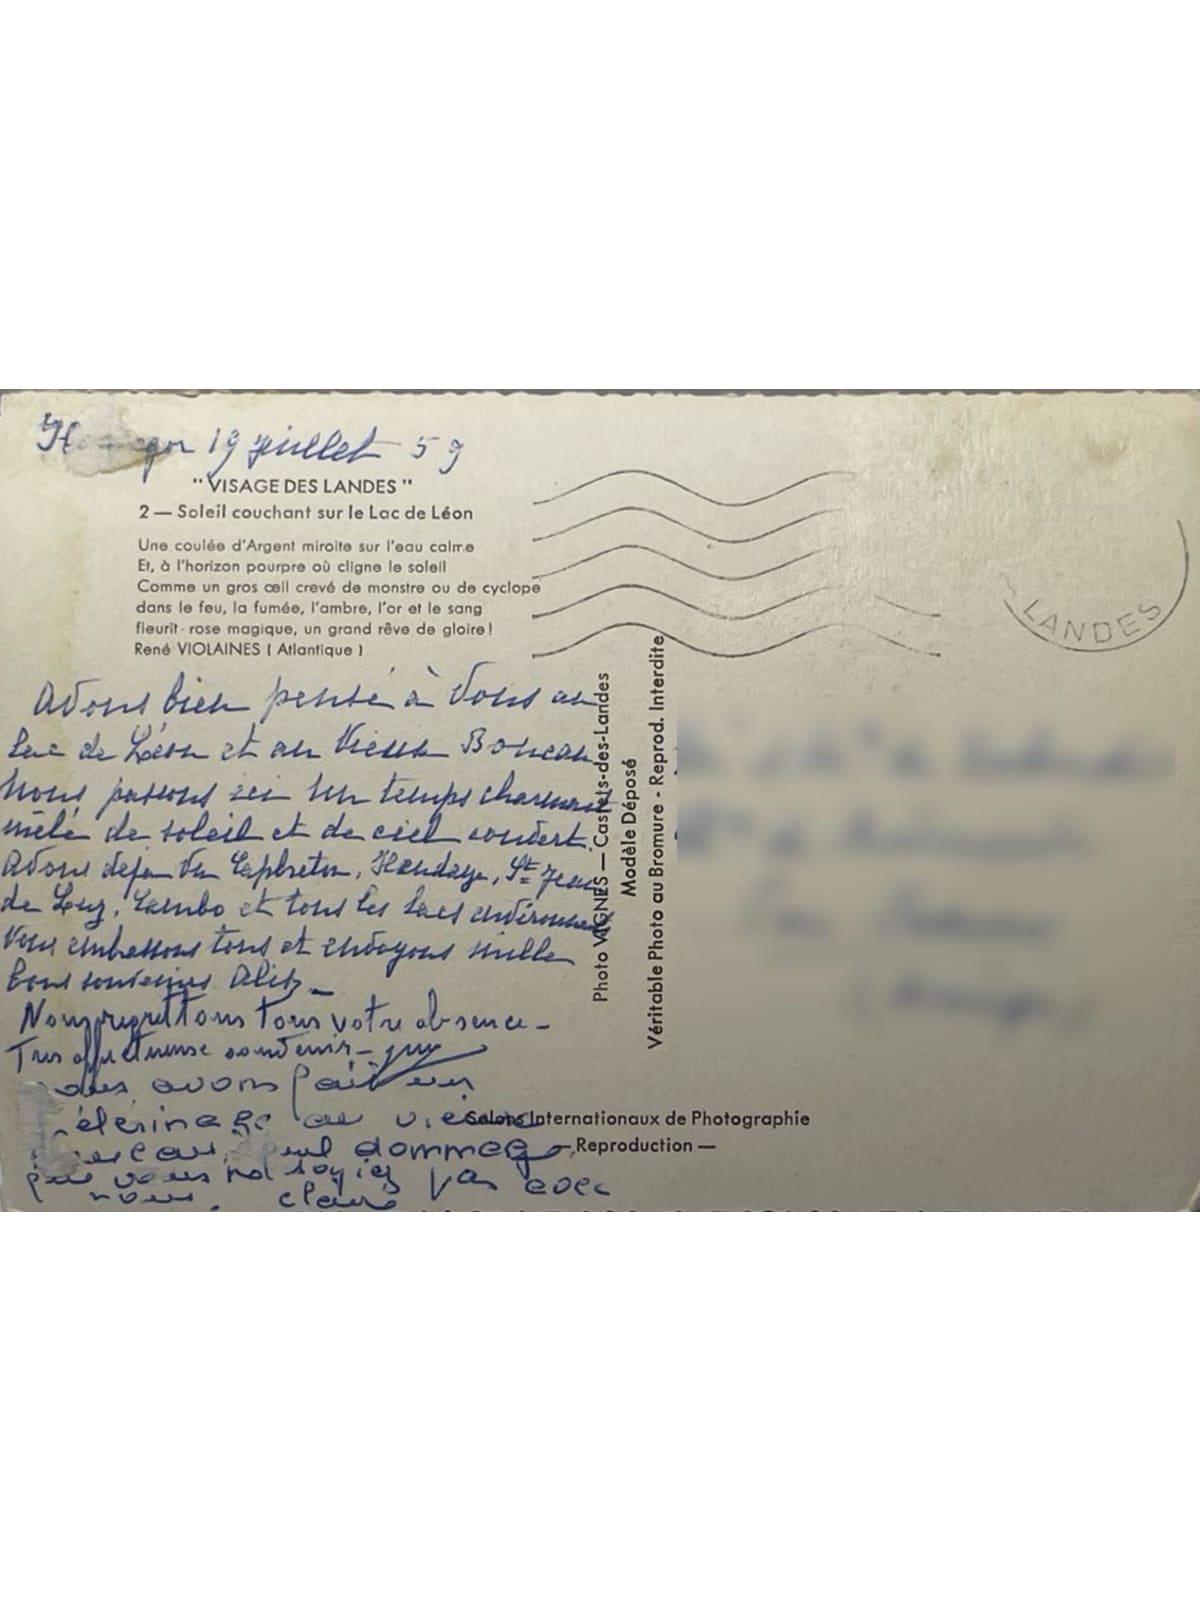 19 juillet 59
"VISAGE DES LANDES"
2 — Soleil couchant sur le Lac de Léon
Une coulée d'Argent miroite sur l'eau calme
Et, à l'horizon pourpre où cligne le soleil
Comme un gros œil crevé de monstre ou de cyclope
dans le feu, la fumée, l'ambre, l'or et le sang
fleurit rose magique, un grand rêve de gloire !
René VIOLAINES ( Atlantique )
Avons bien pensé à Vous au
Lac de Léon et au Vieux Boucau
Nous passons ici un temps charmant
mêlé de soleil et de ciel couvert.
Avons déjà vu Capbreton, Hendaye, St Jean
de Luz, Cambo et tous les lacs environnants
Vous embrassons tous et envoyons mille
bons souvenirs
Nous regrettons tous votre absence –
Très affectueuse souvenir – Guy
nous avons fait un
pélérinage au vieux
boucau, seul dommage
que vous ne soyiez pas avec
nous. claire
Photo VIGNES — Castets-des-Landes
Modèle Déposé
Véritable Photo au Bromure - Reprod. Interdite
Salons Internationaux de Photographie
— Reproduction —
LANDES